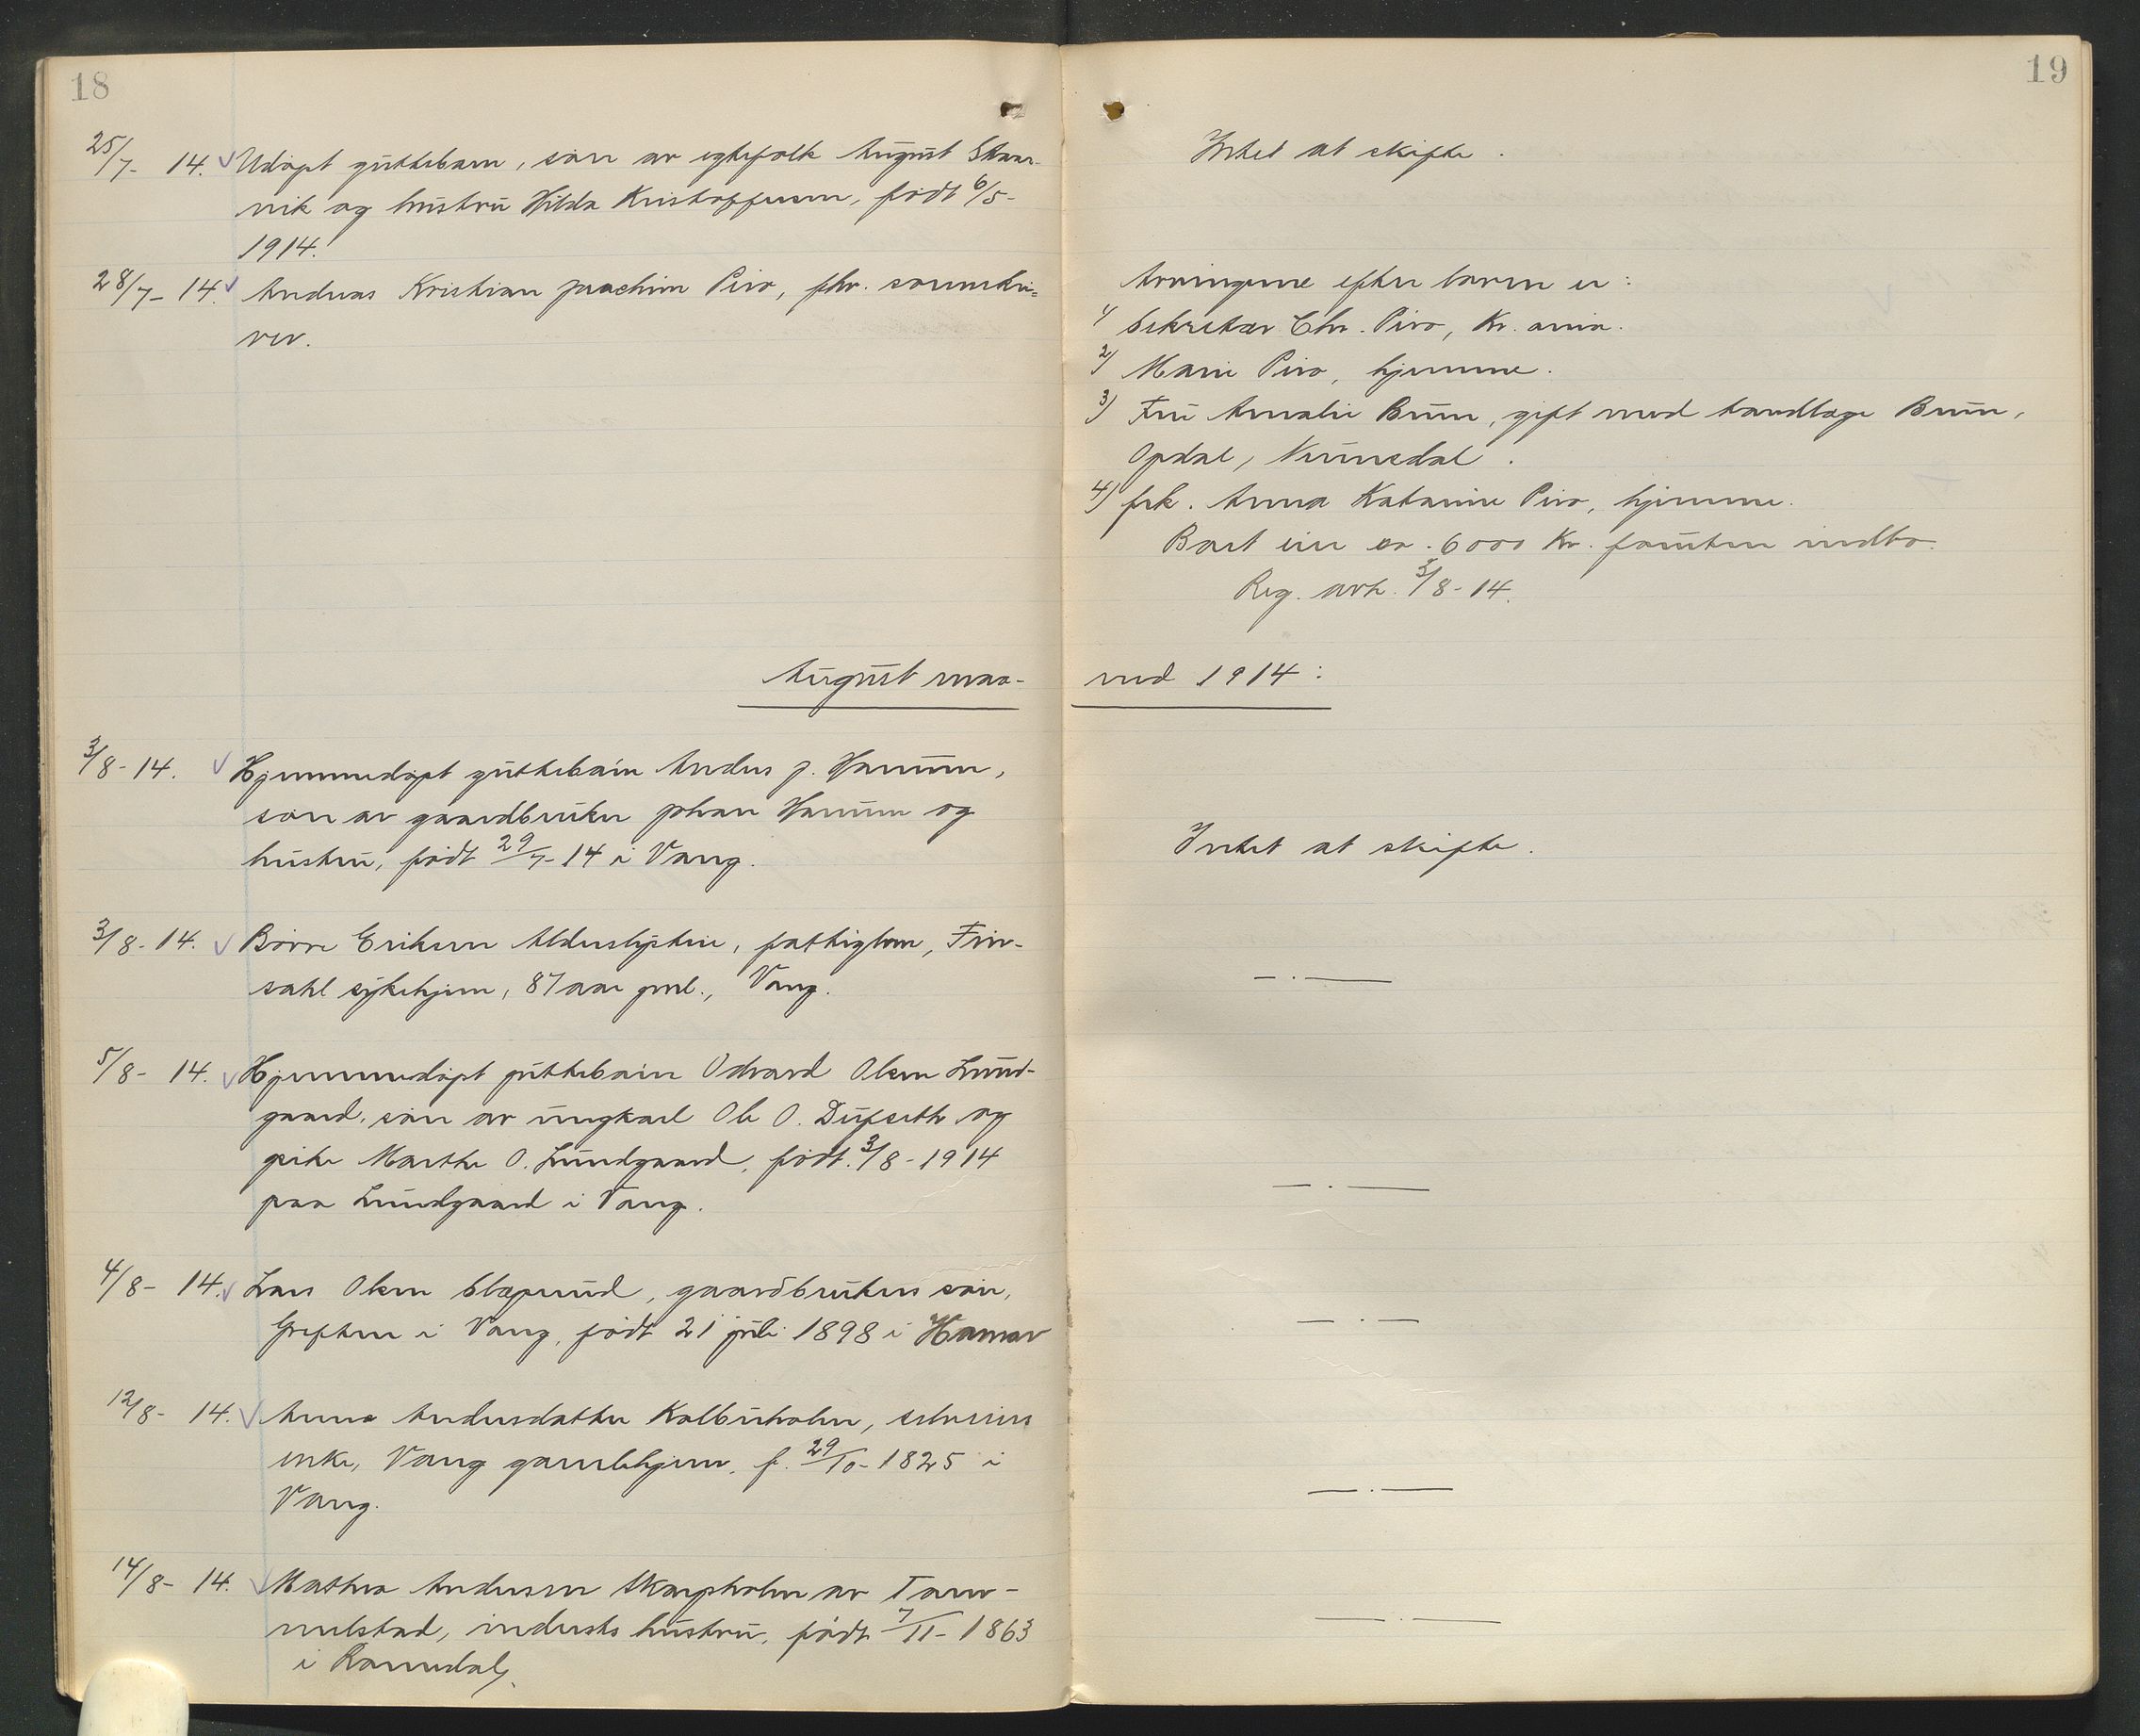 18
25/7- 14. Udøpt guttebarn, søn av egtefolk August Skaar-
vik og hustru Hilda Kristoffersen, født 6/5-
1914.
28/7- 14. Andreas Kristian Joachim Piro, fhv. sorenskri=
ver.
August maa-
3/8- 14. Hjemmedøpt guttebarn Anders J. Hanum,
søn av gaardbruker Johan Hanum og
hustru, født 29/7- 14 i Vang.
3/8- 14. Børre Eriksen Alderslyst, fattiglem, Fin-
sahl sykehjem, 87 aar gml., Vang.
5/8- 14. Hjemmedøpt guttebarn Odvard Olsen Lund-
gaard, søn av ungkarl Ole O. Dufseth og
pike Marthe O. Lundgaard, født 3/8- 1914
paa Lundgaard i Vang.
4/8- 14. Lars Olsen Slæpsrud, gaardbrukers søn,
i Vang, født 21 juli 1898 i Hamar
12/8- 14. Anna Andersdatter Kolbuholen, selveiers
enke, Vang gamlehjem, f. 29/10- 1825 i
Vang.
14/8- 14. Mathea Andersen Skarpholen av Tom-
melstad, indersts hustru, født 7/11- 1863
i Romedal.
19
Intet at skifte.
Arvingerne efter loven er:
1) Sekretær Chr. Piro, Kr. ania.
2) Marie Piro, hjemme.
3) Fru Amalie Bruun, gift med tandlæge Bruun,
Opdal, Numedal.
4) frk. Anna Katarine Piro, hjemme.
Boet eier ca. 6000 Kr. foruten indbo.
Reg. avh. 3/8- 14.
ned 1914:
Intet at skifte.
— . —
— . —
— . —
— . —
— . —